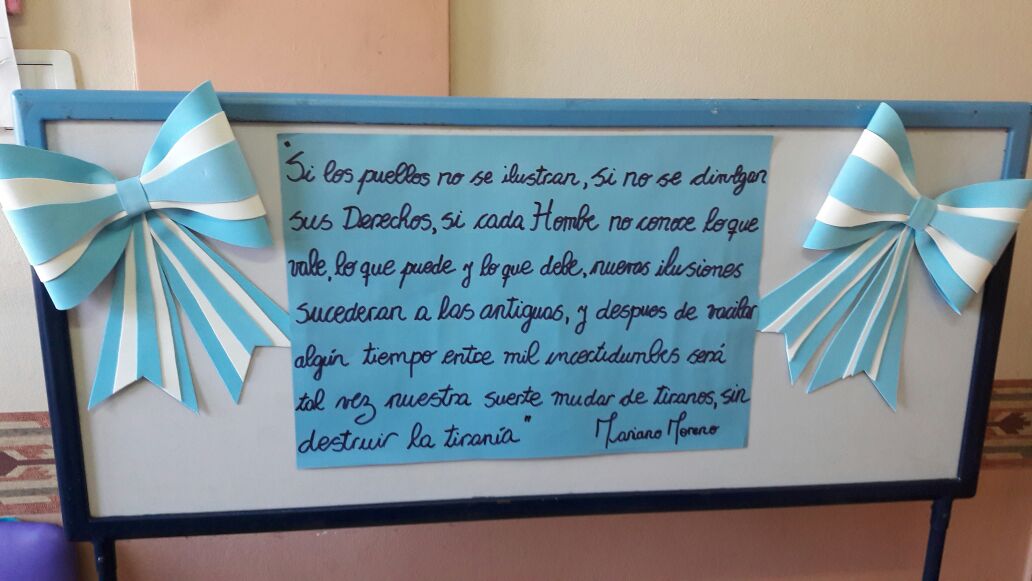 "Si los pueblos no se ilustran, si no se divulgan
sus Derechos, si cada Hombre no conoce lo que
vale, lo que puede y lo que debe, nuevas ilusiones
sucederan a las antiguas, y despues de vacilar
algún tiempo entre mil incertidumbes será
tal vez nuestra suerte mudar de tiranos, sin
destruir la tiranía" Mariano Moreno